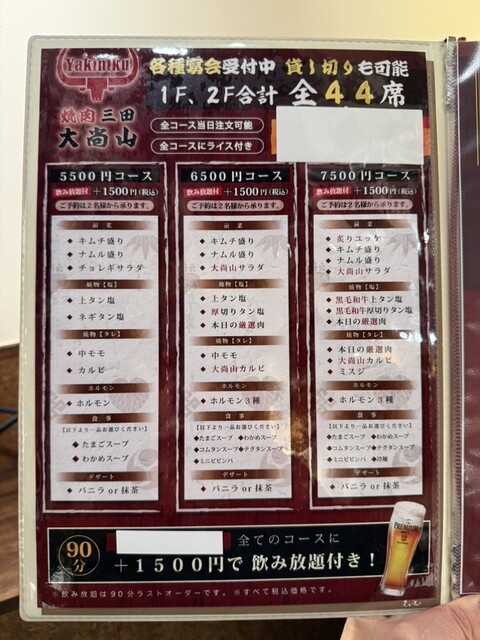 Yakiniku
焼肉三田
大尚山
各種宴会受付中 貸し切りも可能
1F、2F合計 全44席
全コース当日注文可能
全コースにライス付き
5500円コース
飲み放題付 +1500円(税込)
ご予約は2名様から承ります。
前菜
◆ キムチ盛り
◆ ナムル盛り
◆ チョレギサラダ
焼物【塩】
◆ 上タン塩
◆ ネギタン塩
焼物【タレ】
◆ 中モモ
◆ カルビ
ホルモン
◆ ホルモン
食事
【以下より一品お選びください】
◆ たまごスープ
◆ わかめスープ
デザート
◆ バニラ or 抹茶
6500円コース
飲み放題付 +1500円(税込)
ご予約は2名様から承ります。
前菜
◆ キムチ盛り
◆ ナムル盛り
◆ 大尚山サラダ
焼物【塩】
◆ 上タン塩
◆ 厚切りタン塩
◆ 本日の厳選肉
焼物【タレ】
◆ 中モモ
◆ 大尚山カルビ
ホルモン
◆ ホルモン3種
食事
【以下より一品お選びください】
◆たまごスープ ◆わかめスープ
◆コムタンスープ ◆テグタンスープ
◆ミニビビンバ
デザート
◆ バニラ or 抹茶
7500円コース
飲み放題付 +1500円(税込)
ご予約は2名様から承ります。
前菜
◆ 炙りユッケ
◆ キムチ盛り
◆ ナムル盛り
◆ 大尚山サラダ
焼物【塩】
◆ 黒毛和牛上タン塩
◆ 黒毛和牛厚切りタン塩
◆ 本日の厳選肉
焼物【タレ】
◆ 本日の厳選肉
◆ 大尚山カルビ
◆ ミスジ
ホルモン
◆ ホルモン3種
食事
【以下より一品お選びください】
◆たまごスープ ◆わかめスープ
◆コムタンスープ ◆テグタンスープ
◆ミニビビンバ ◆冷麺
デザート
◆ バニラ or 抹茶
90分
全てのコースに
+1500円で 飲み放題付き!
※飲み放題は90分ラストオーダーです。※すべて税込価格です。